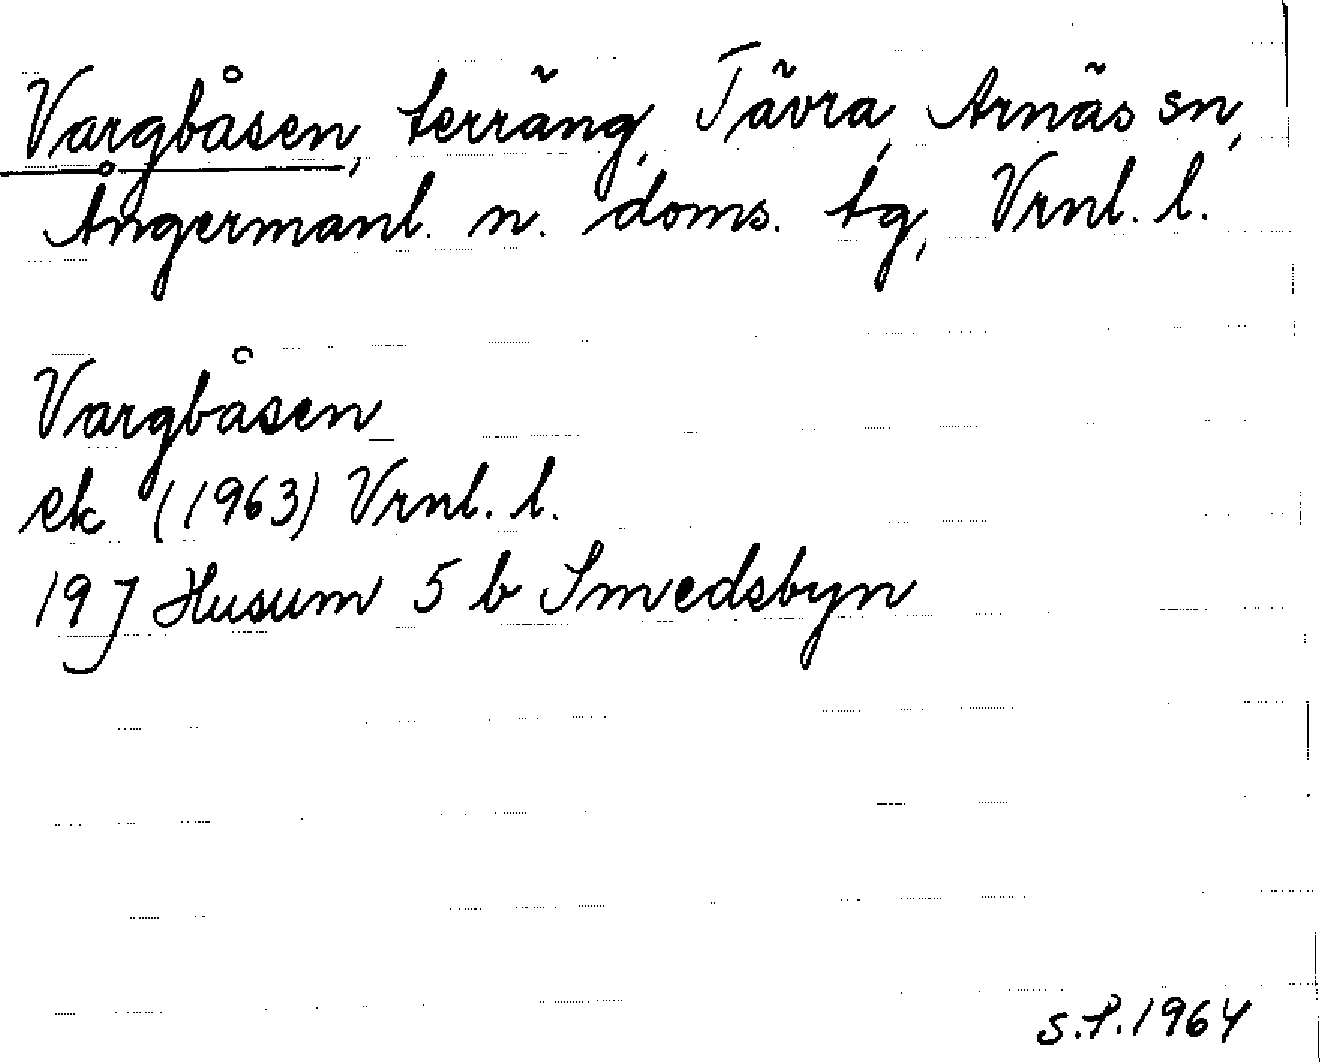 Vargbåsen, terräng, Tävra, Arnäs sn,
Ångermanl. n. doms. tg, Vrnl. l.
Vargbåsen
ek (1963) Vrnl. l.
19 J Husum 5 b Smedsbyn
S.P. 1964